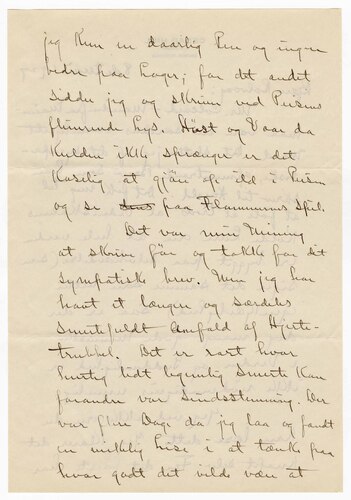 jeg kun en daarlig Pen og ingen
bedre paa Lager; for det andet
sidder jeg og skriver ved Peisens
flimrende Lys. Høst og Vaar da
Kulden ikke sprænger er det
koselig at gjøre op ild i Peisen
og se paa Flammernes Spil.
Det var min Mening
at skrive før og takke for dit
sympatiske brev. Men jeg har
havt et længere og særdeles
smertefuldt Anfald af Hjerte-
trubbel. Det er rart hvor
hurtig lidt legemlig Smerte kan
forandre vor Sindsstemning. Der
var flere Dage da jeg laa og fandt
en virkelig Lise i at tænke paa
hvor godt det vilde være at